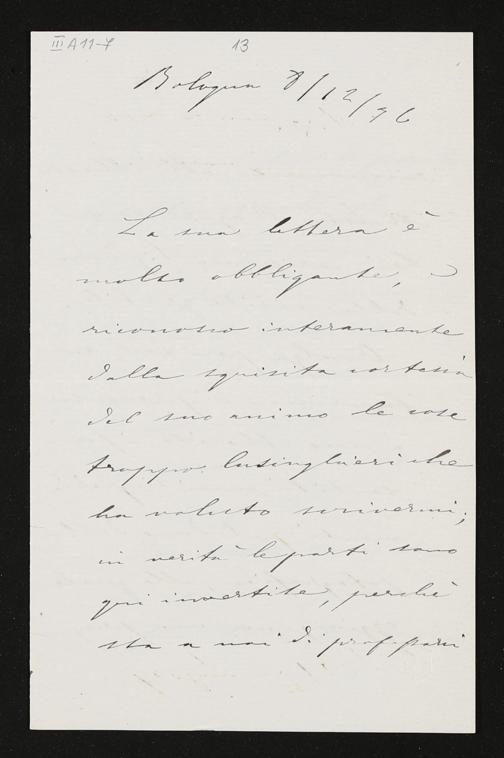 III A 11-7
13
Bologna 8/12/96
La sua lettera è
molto obbligante, e
riconosco interamente
dalla squisita cortesia
del suo animo le cose
troppo lusinghieri che
ha voluto scrivermi;
in verità le parti sono
qui invertite, perchè
sta a noi di prof.